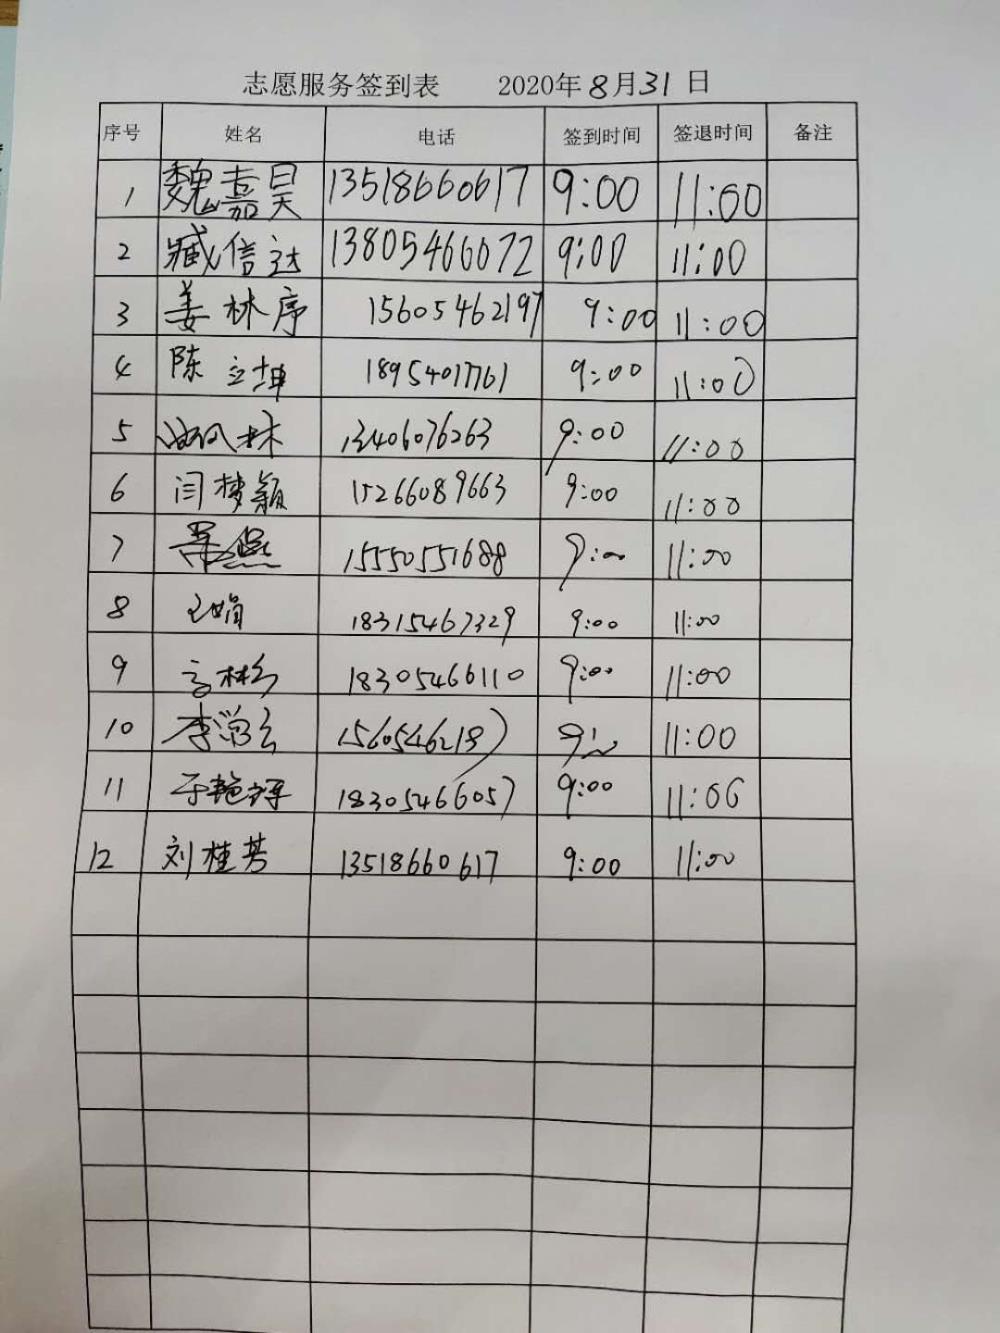 志愿服务签到表 2020年8月31日
序号 姓名 电话 签到时间 签退时间 备注
1 魏嘉昊 13518660617 9:00 11:00
2 臧信达 13805466072 9:00 11:00
3 姜林序 15605462197 9:00 11:00
4 陈立坤 18954017761 9:00 11:00
5 13406076263 9:00 11:00
6 闫梦颖 15266089663 9:00 11:00
7 15550551688 9:00 11:00
8 王娟 18315467329 9:00 11:00
9 18305466110 9:00 11:00
10 11:00
11 于艳 18305466057 9:00 11:00
12 刘桂芳 13518660617 9:00 11:00